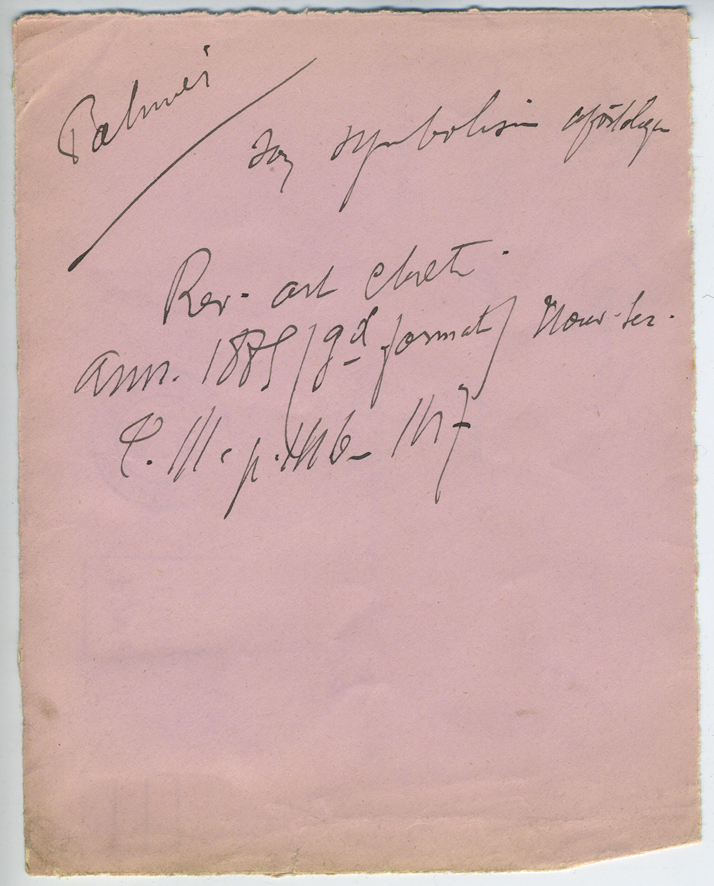 Palmier
Son symbolisme apostolique
Rev. art chrét.
Ann. 1885 (gd format) Nouv. Ser.
T. III. p.